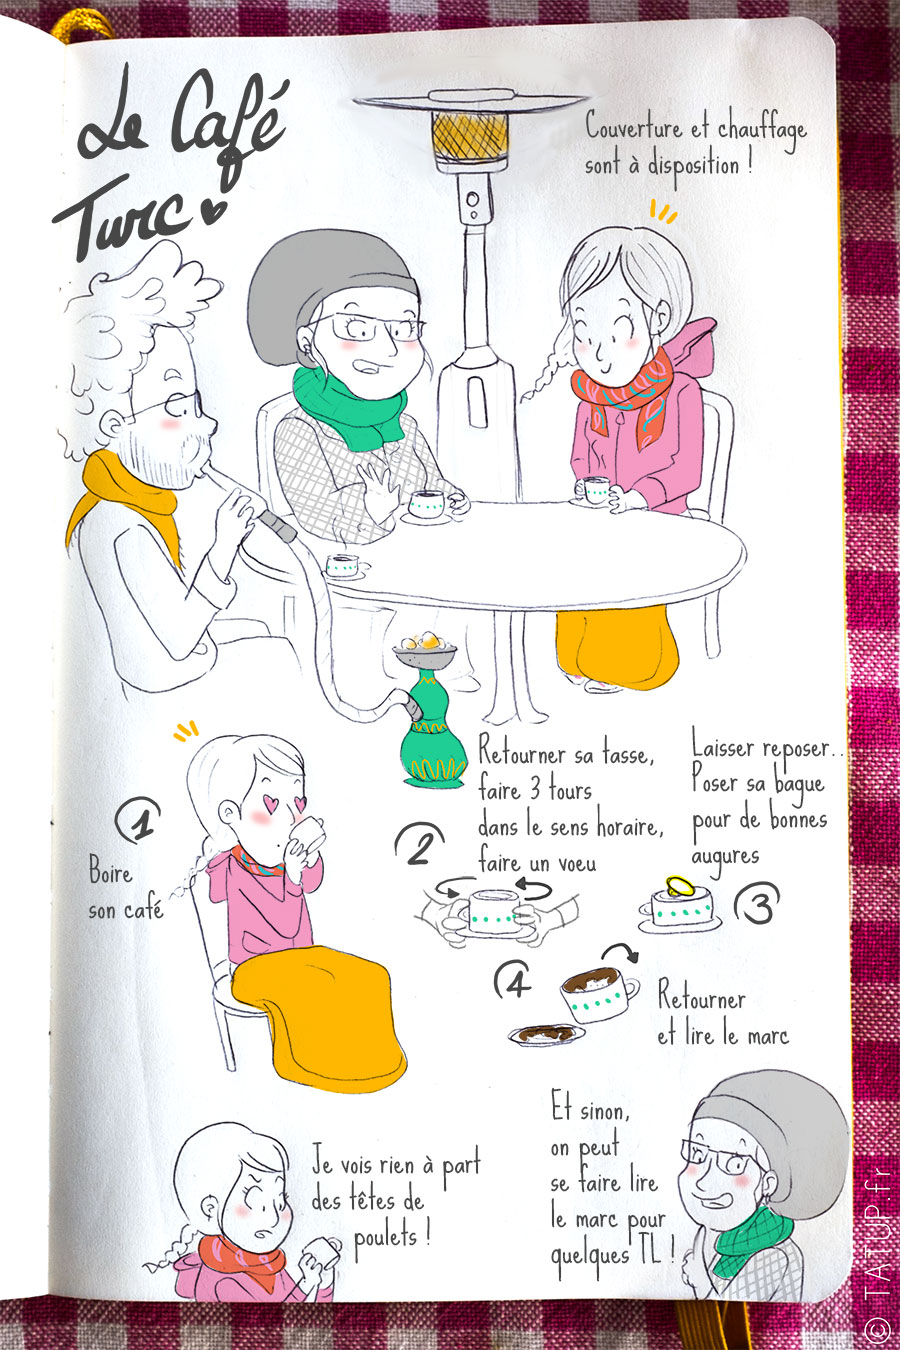 Le Café
Turc
Couverture et chauffage
sont à disposition !
1
Boire
son café
2
Retourner sa tasse,
faire 3 tours
dans le sens horaire,
faire un voeu
3
Laisser reposer...
Poser sa bague
pour de bonnes
augures
4
Retourner
et lire le marc
Je vois rien à part
des têtes de
poulets !
Et sinon,
on peut
se faire lire
le marc pour
quelques TL !
© TATUP.fr